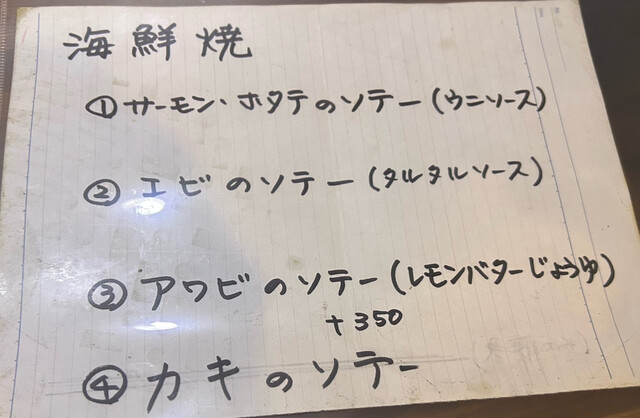 海鮮焼
①サーモン・ホタテのソテー(ウニソース)
②エビのソテー(タルタルソース)
③アワビのソテー(レモンバターじょうゆ)
+350
④カキのソテー